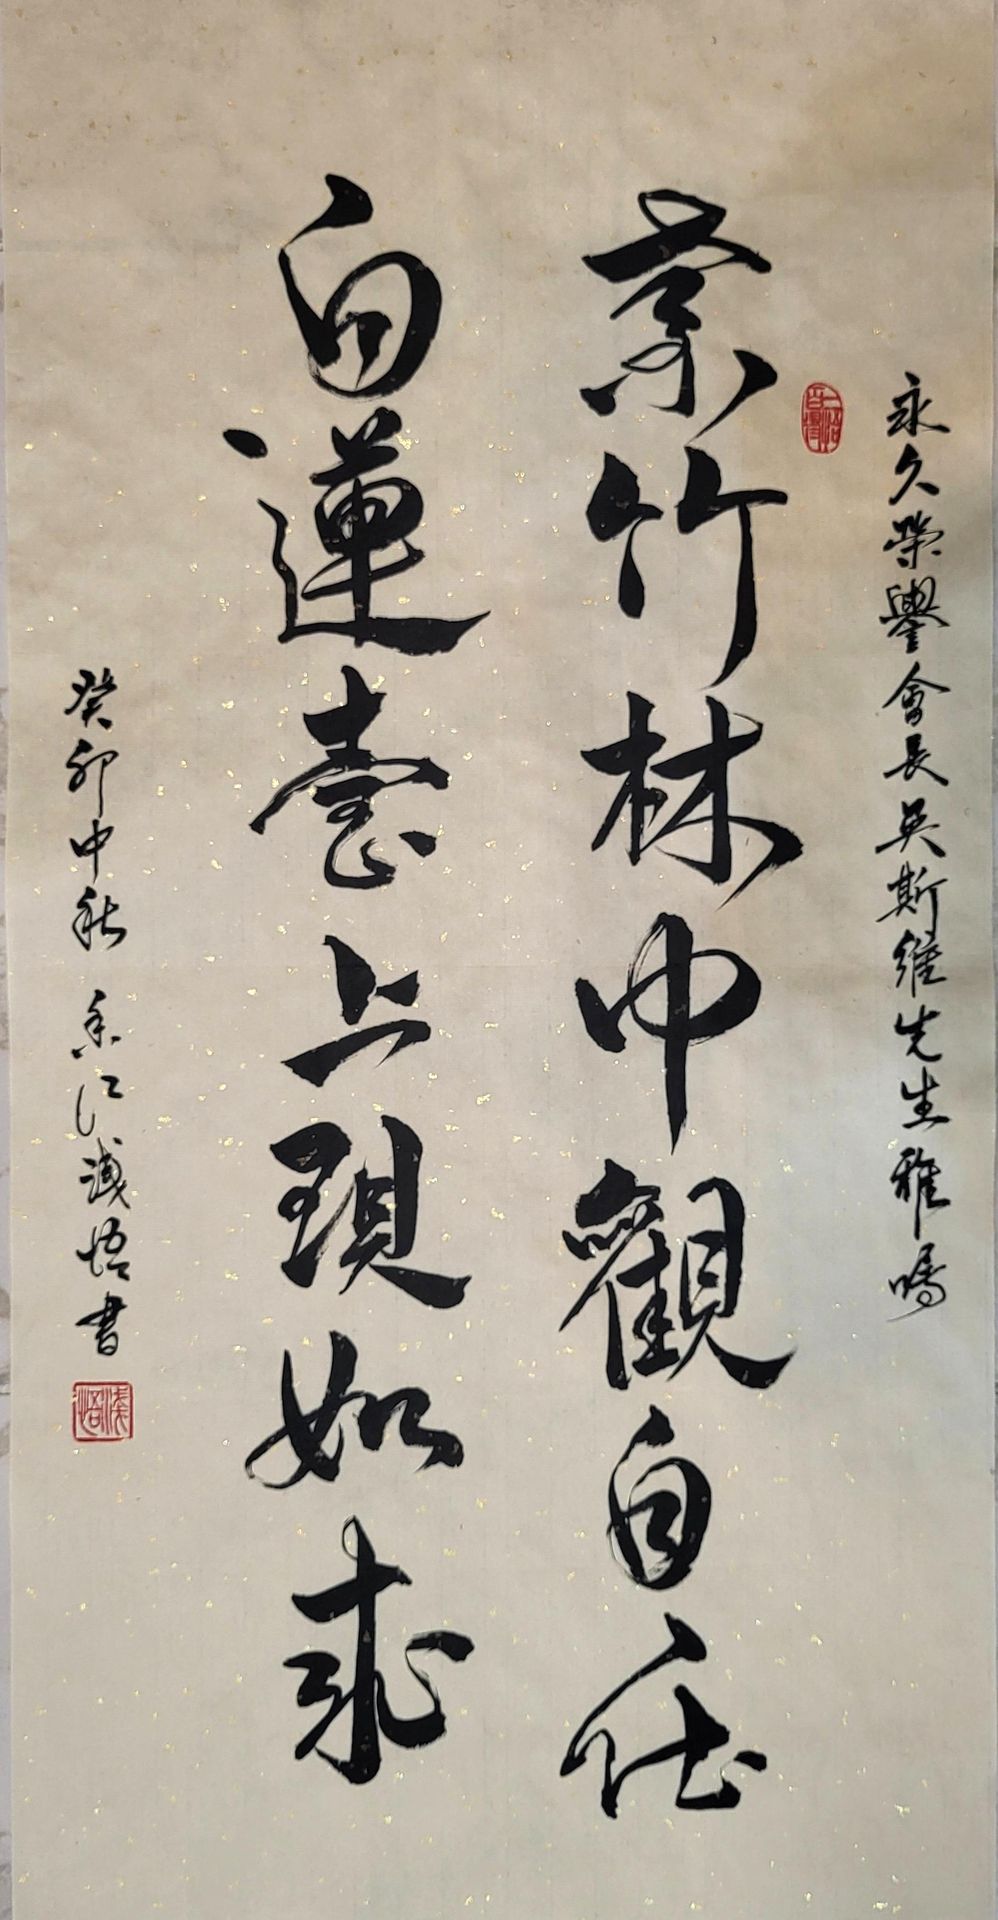 永久榮譽會長吳斯維先生雅囑
紫竹林中觀自在
白蓮臺上現如來
癸卯中秋 香江淺悟書
淺悟